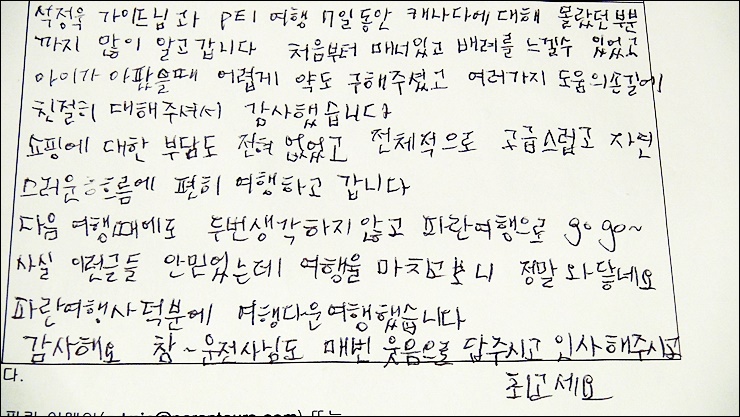 석정욱 가이드님과 PEI 여행 7일동안 캐나다에 대해 몰랐던부분
까지 많이 알고갑니다 처음부터 매너있고 배려를 느낄수 있었고
아이가 아팠을때 어렵게 약도 구해주셨고 여러가지 도움의손길에
친절히 대해주셔서 감사했습니다
쇼핑에 대한 부담도 전혀 없었고 전체적으로 고급스럽고 자연
스러운 흐름에 편히 여행하고 갑니다
다음 여행때에도 두번생각하지않고 파란여행으로 go go~
사실 이런글들 안믿었는데 여행을 마치고보니 정말 와닿네요
파란여행사덕분에 여행다운여행했습니다
감사해요 참~운전사님도 매번 웃음으로 답주시고 인사해주시고
최고세요
다.